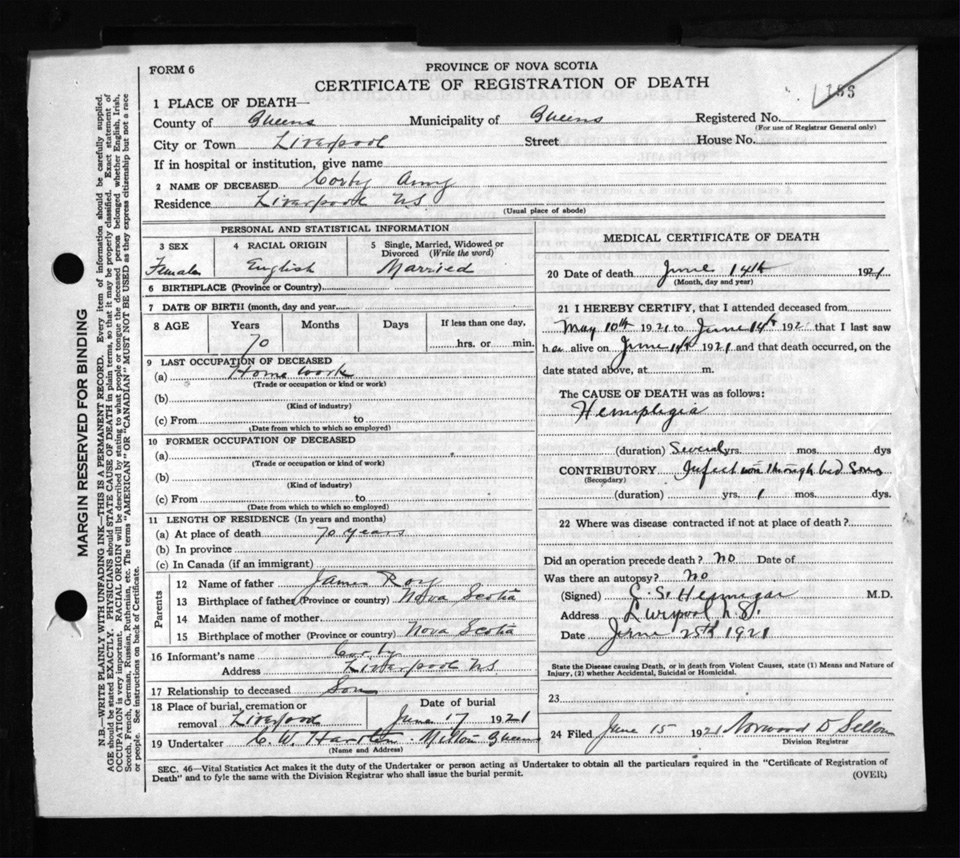 FORM 6
PROVINCE OF NOVA SCOTIA
CERTIFICATE OF REGISTRATION OF DEATH
166
1 PLACE OF DEATH—
County of Queens Municipality of Queens Registered No.
(For use of Registrar General only)
City or Town Liverpool Street House No.
If in hospital or institution, give name
2 NAME OF DECEASED Corby Anny
Residence Liverpool N.S.
(Usual place of abode)
PERSONAL AND STATISTICAL INFORMATION
3 SEX 4 RACIAL ORIGIN 5 Single, Married, Widowed or
Divorced (Write the word)
Female English Married
6 BIRTHPLACE (Province or Country)
7 DATE OF BIRTH (month, day and year
8 AGE Years Months Days If less than one day,
70 hrs. or min.
9 LAST OCCUPATION OF DECEASED
(a) Home work
(Trade or occupation or kind or work)
(b)
(Kind of industry)
(c) From to
(Date from which to which so employed)
10 FORMER OCCUPATION OF DECEASED
(a)
(Trade or occupation or kind of work)
(b)
(Kind of industry)
(c) From to
(Date from which to which so employed)
11 LENGTH OF RESIDENCE (In years and months)
(a) At place of death 70 years
(b) In province
(c) In Canada (if an immigrant)
Parents
12 Name of father James Roy
13 Birthplace of father (Province or country) Nova Scotia
14 Maiden name of mother
15 Birthplace of mother (Province or country) Nova Scotia
16 Informant's name Corby
Address Liverpool N.S.
17 Relationship to deceased Son
18 Place of burial, cremation or Date of burial
removal Liverpool June 17 1921
19 Undertaker C. W. Milton Queens
(Name and Address)
MEDICAL CERTIFICATE OF DEATH
20 Date of death June 14th 1921
(Month, day and year)
21 I HEREBY CERTIFY, that I attended deceased from
May 10th 1921 to June 14th 192 that I last saw
her alive on June 14th 1921 and that death occurred, on the
date stated above, at m.
The CAUSE OF DEATH was as follows:
Hemiplegia
(duration) Several yrs. mos. dys
CONTRIBUTORY Infection through bed sores
(Secondary)
(duration) yrs. 1 mos. dys.
22 Where was disease contracted if not at place of death?
Did an operation precede death? no Date of
Was there an autopsy? no
(Signed) M.D.
Address Liverpool N.S.
Date June 25th 1921
State the Disease causing Death, or in death from Violent Causes, state (1) Means and Nature of
Injury, (2) whether Accidental, Suicidal or Homicidal.
23
24 Filed June 15 1921 Norwood D
Division Registrar
SEC. 46—Vital Statistics Act makes it the duty of the Undertaker or person acting as Undertaker to obtain all the particulars required in the "Certificate of Registration of
Death" and to fyle the same with the Division Registrar who shall issue the burial permit.
(OVER)
MARGIN RESERVED FOR BINDING
N.B.—WRITE PLAINLY WITH UNFADING INK—THIS IS A PERMANENT RECORD. Every item of information should be carefully supplied.
AGE should be stated EXACTLY. PHYSICIANS should STATE CAUSE OF DEATH in plain terms, so that it may be properly classified. Exact statement of
OCCUPATION is very important. RACIAL ORIGIN will be described by stating to what people or tongue the deceased person belonged whether English, Irish,
Scotch, French, German, Russian, Ruthenian, etc. The terms "AMERICAN" OR "CANADIAN" MUST NOT BE USED as they express citizenship but not a race
or people. See instructions on back of Certificate.